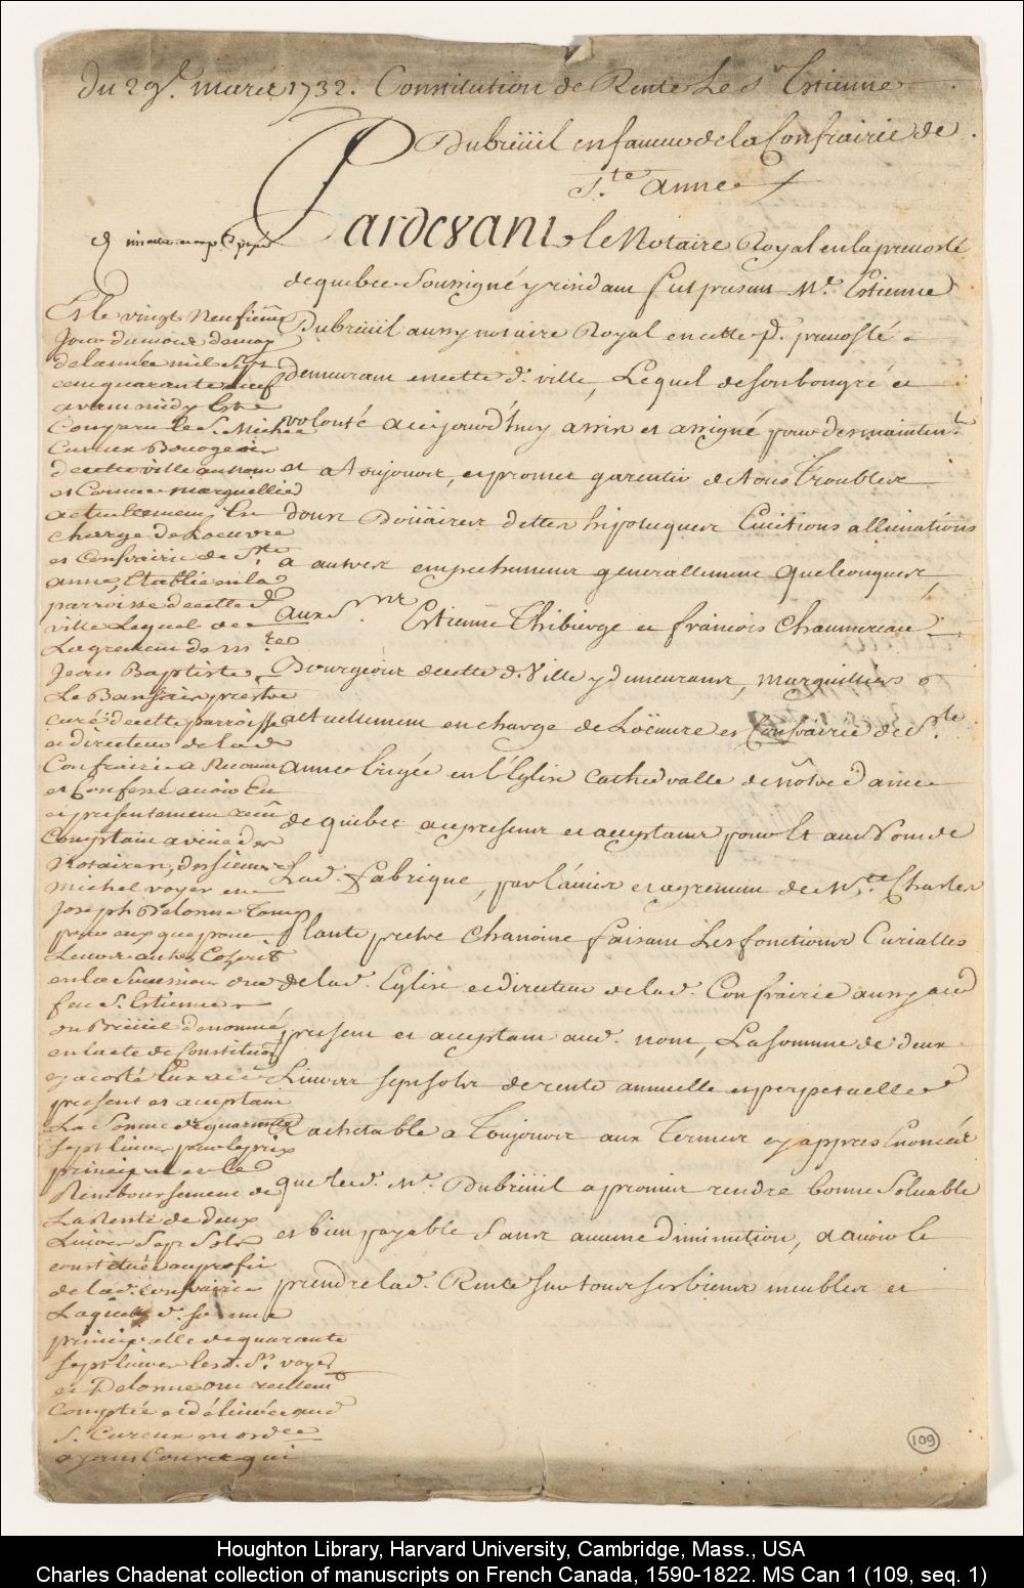 du 29e. mars 1732. Constitution de Rente Le Sr Estienne
Dubreüil en faueur de la Confrairie de
Ste. anne
Pardevant le Notaire Royal en la preuosté
de quebec soussigné y residant fut present Me. Estienne
Dubreüil aussy notaire Royal en cette d. preuosté
demeurant en cette d. ville, Lequel de son bon gré et
volonté a cejourd'huy assis et assigné pour des maintent.
et a Toujours, et promet garentir de tous Troubles
dons Doüaires dettes hipoteques Euictions allienations
a autres empechemens generallement quelconques,
aux Srs. Estienne Thibierge et francois Chaumereau
Bourgeois de cette d. Ville y demeurans, marguilliers
actuellement en charge de Loeuure et Confrairie de Ste.
anne Erigée en l'Eglise Cathedralle de nôtre dame
de quebec a ce presens et acceptans pour Et au Nom de
Lad. fabrique, par l'auis et agrement de Mre. Charles
Plante pretre Chanoine faisant Les fonctions Curialles
de lad. Eglise et directeur de lad. Confrairie aussy a ce
present et acceptant aud. nom, La somme de deux
Liures sept sols de rente annuelle et perpetuelle
Rachetable a Toujours aux Termes cy appres Enoncés
que led. Me. Dubreüil a promis rendre bonne Soluable
et bien payable Sans aucune diminution, a auoir le
prendre lad. Rente sur tous ses biens meubles et
Et le vingt Neufieme
Jour du mois de may
de l'année mil sept
cens quarante neuf
avant midy Est
Comparu le S. Michel
Cureux Bourgeois
de cette ville au nom
et Comme marguillier
actuellement En
charge de Loeuvre
et Confrairie de Ste.
anne, Etablie en la
parroisse de cette d.
ville Lequel de
Lagrement de Mre.
Jean Baptiste
Le prestre
curé de cette parroisse
et directeur de lad.
Confrairie a Reconnu
et Confessé avoir Eu
et presentement receu
Comptant a vüe des
Notaires, des sieurs
Michel voyer et
Joseph Delorme Tant
pour eux que pour
Leurs autres Coherit
en la Succession de
feu S. Estienne
Du Breüiel denommé
en lacte de Constitution
cy a costé a ce
present et acceptant
La Somme de quarante
sept Liures pour le prix
principal et le
Remboursement de
La Rente de deux
Liures Sept Sols
constituée au profit
de lad. confrairie
Laquelle d. somme
principalle de quarante
sept Liures lesd. Srs. voyer
et Delorme ont reellemt
Comptée et délivrée aud
S. Cureux
ayant Cours qui
109
Houghton Library, Harvard University, Cambridge, Mass., USA
Charles Chadenat collection of manuscripts on French Canada, 1590-1822. MS Can 1 (109, seq. 1)